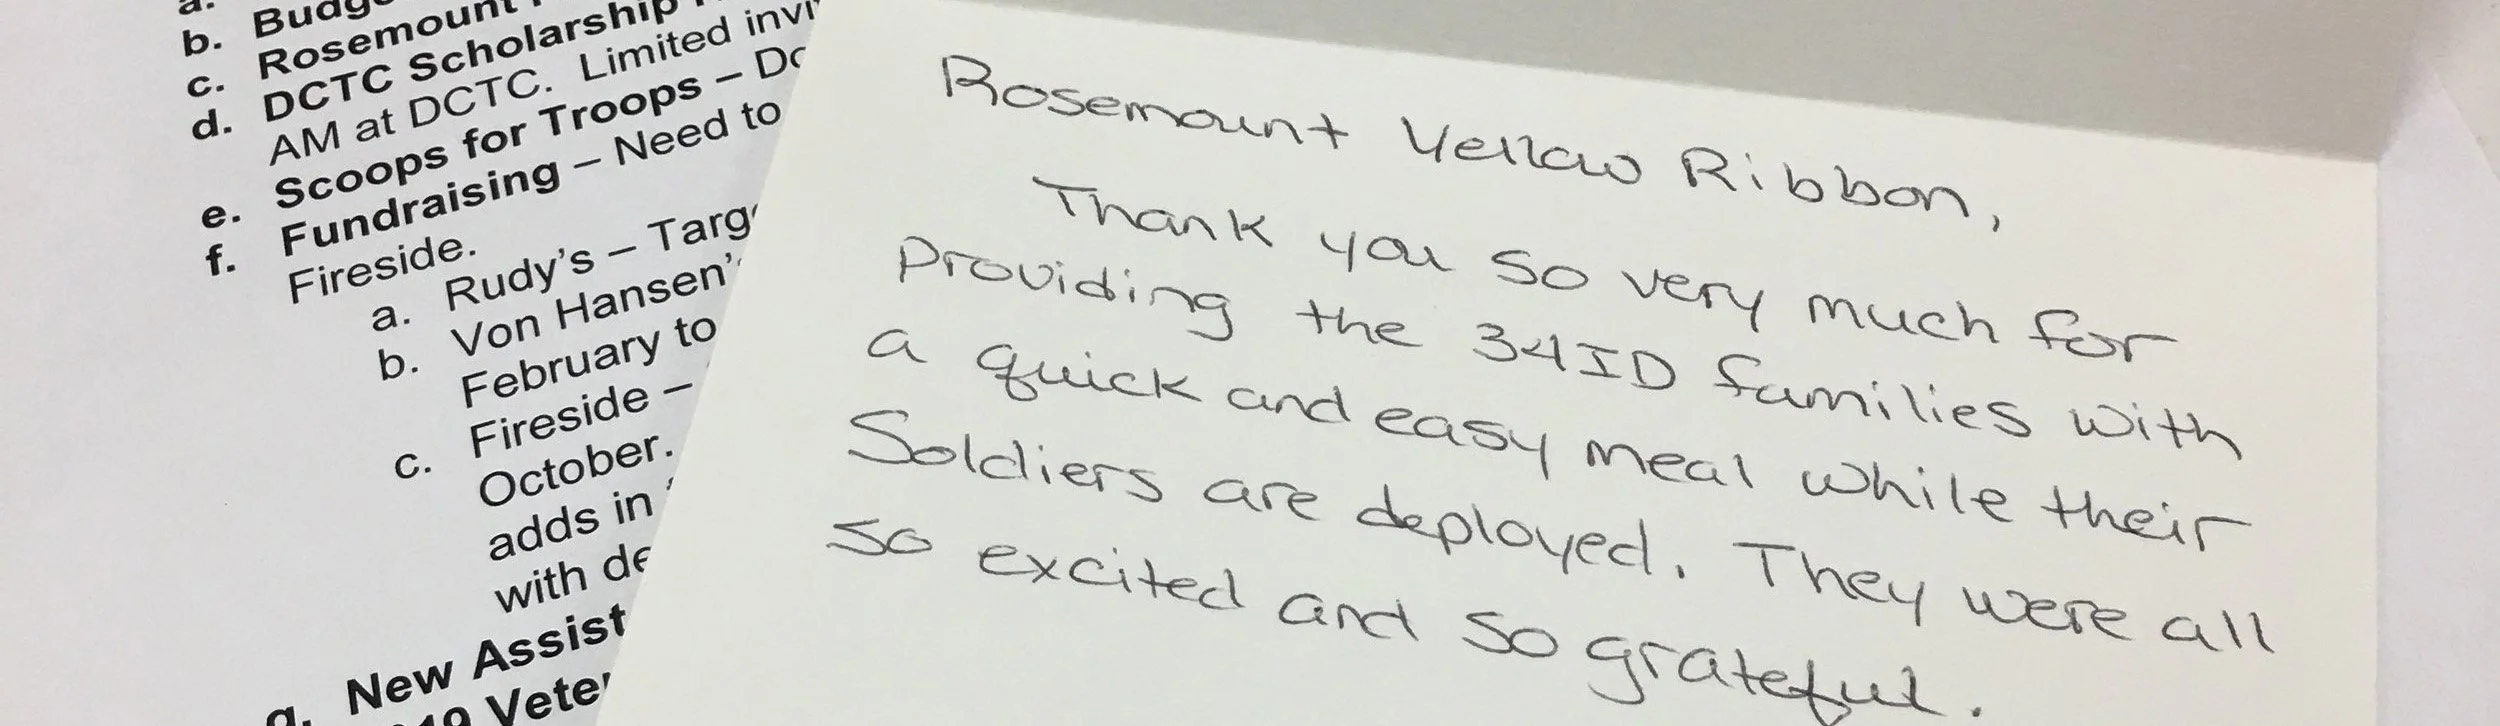 a.
b. Budg
c. Rosemount
d. DCTC Scholarship
AM at DCTC. Limited invi
e. Scoops for Troops – Do
f. Fundraising – Need to
Fireside.
a. Rudy's – Targ
b. Von Hansen's
February to
c. Fireside –
October.
adds in
with de
g. New Assist
Veter
Rosemount Yellow Ribbon,
Thank you so very much for
Providing the 34ID families with
a quick and easy meal while their
Soldiers are deployed. They were all
so excited and so grateful.